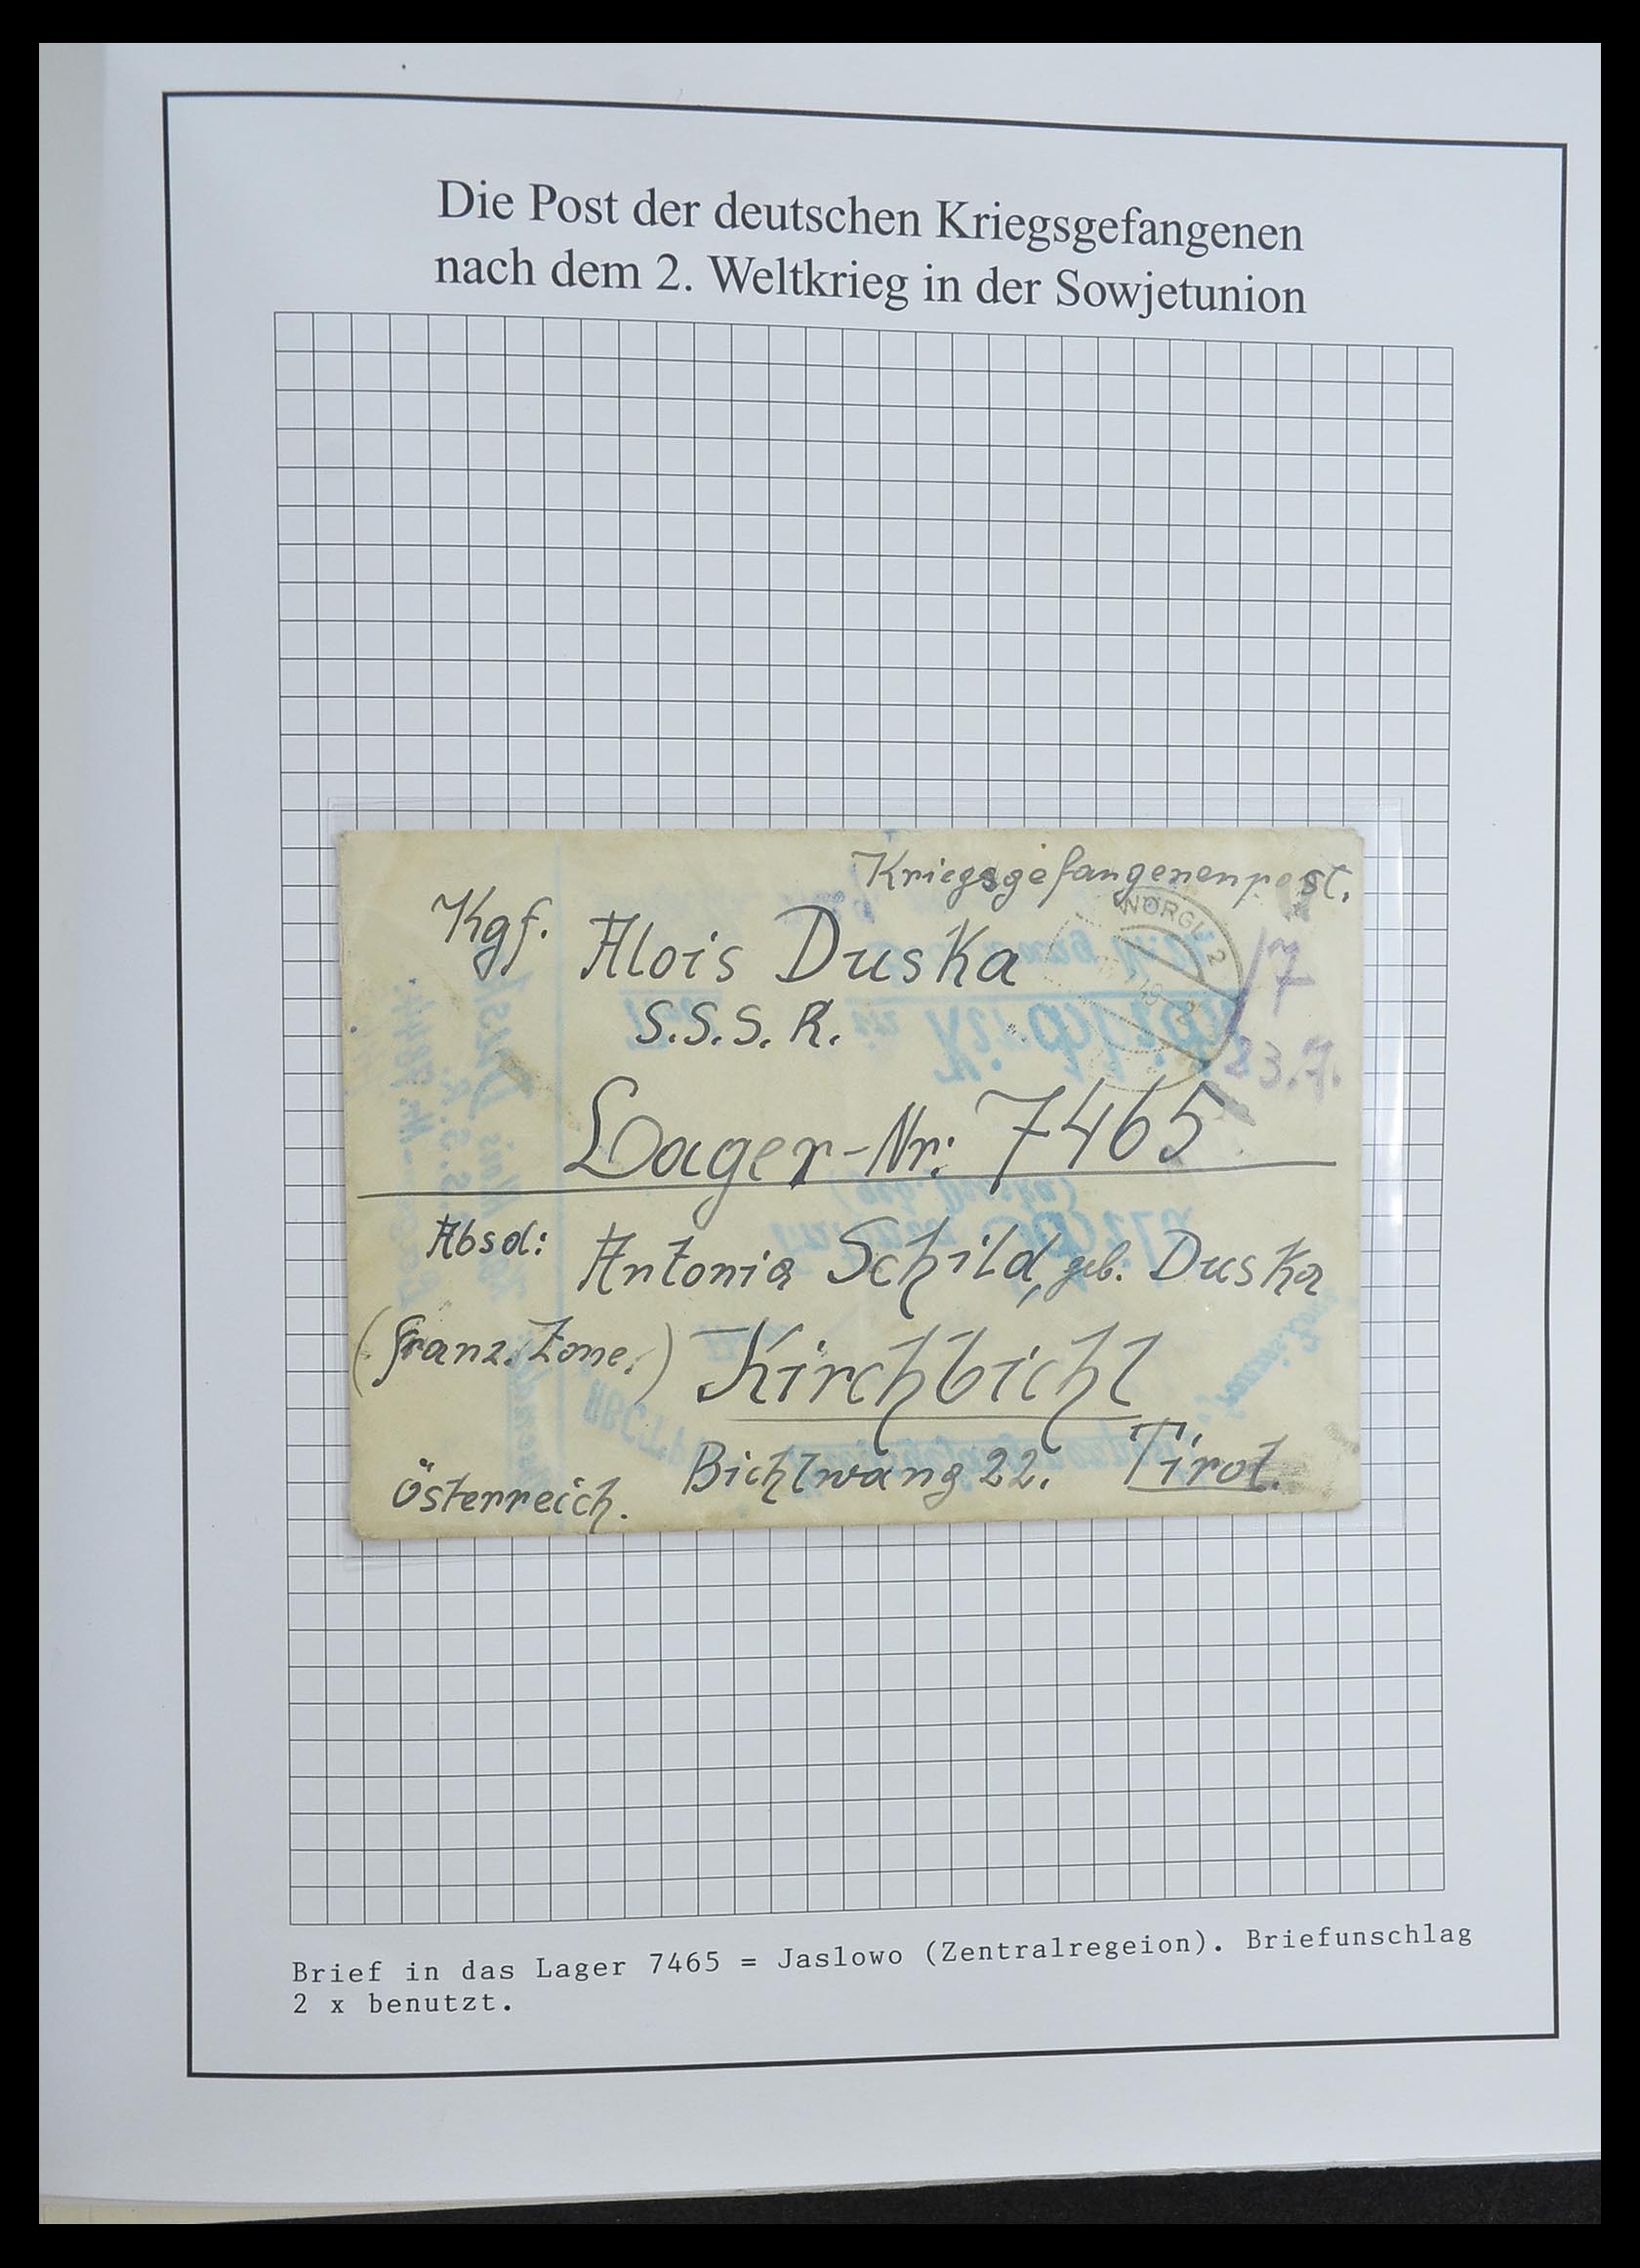 Die Post der deutschen Kriegsgefangenen
nach dem 2. Weltkrieg in der Sowjetunion
Kriegsgefangenenpost.
Kgf. Alois Duska
WÖRGL 2
17
S.S.S.R.
23.7.
Lager-Nr: 7465
Absd: Antonia Schild, geb. Duska
(franz. Zone.) Kirchbichl
Bichlwang 22. Tirol.
Österreich.
Brief in das Lager 7465 = Jaslowo (Zentralregeion). Briefunschlag
2 x benutzt.